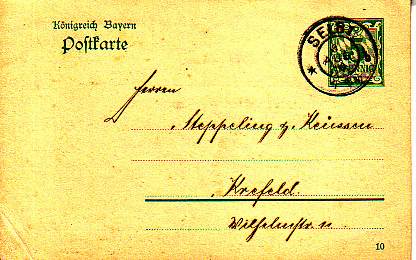 Königreich Bayern
Postkarte
Herren
Steppeling z. Keussen
Krefeld.
Wilhelmstr. 11
10